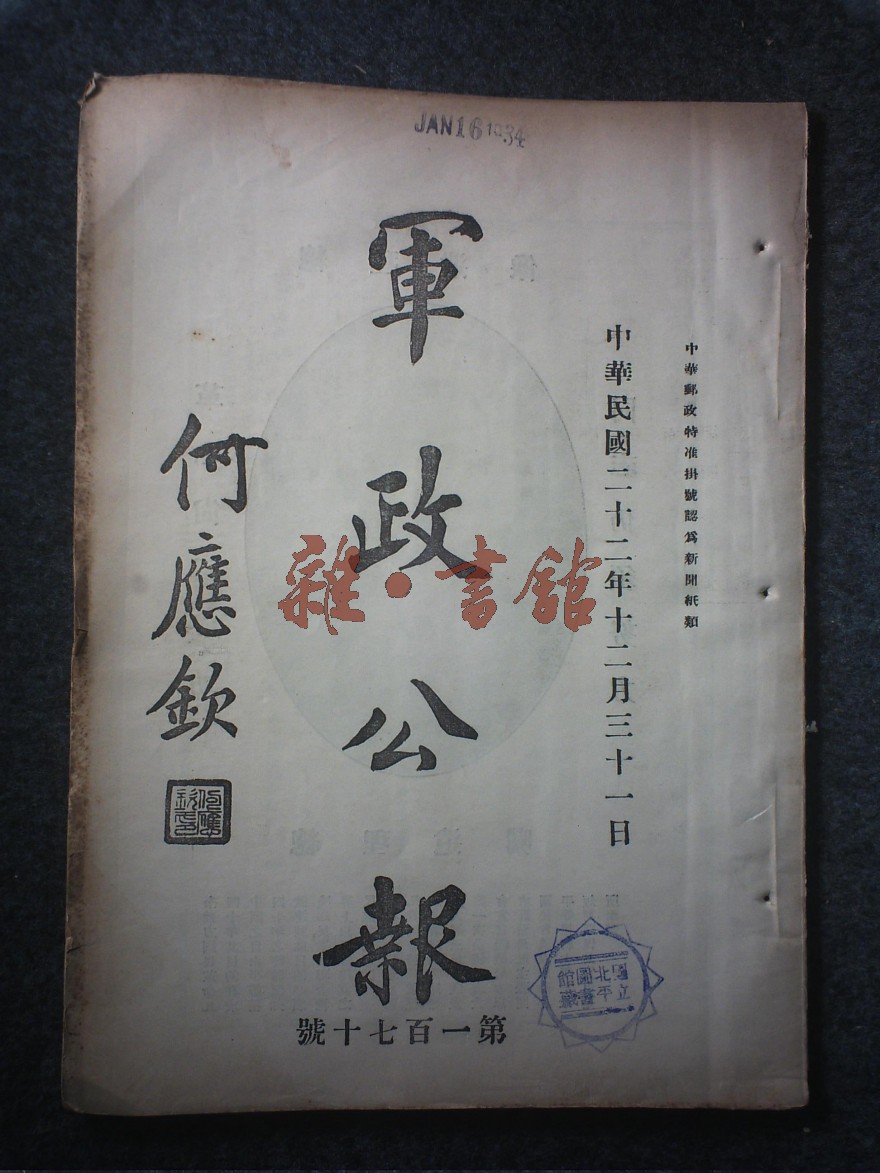 JAN 16 1934
中華郵政特准掛號認爲新聞紙類
中華民國二十二年十二月三十一日
軍政公報
何應欽
何應欽印
第一百七十號
國立北平圖書館藏
雜·書館